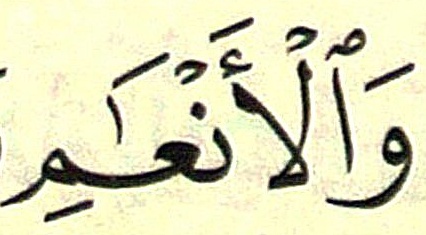 وَٱلْأَنْعَٰمِ